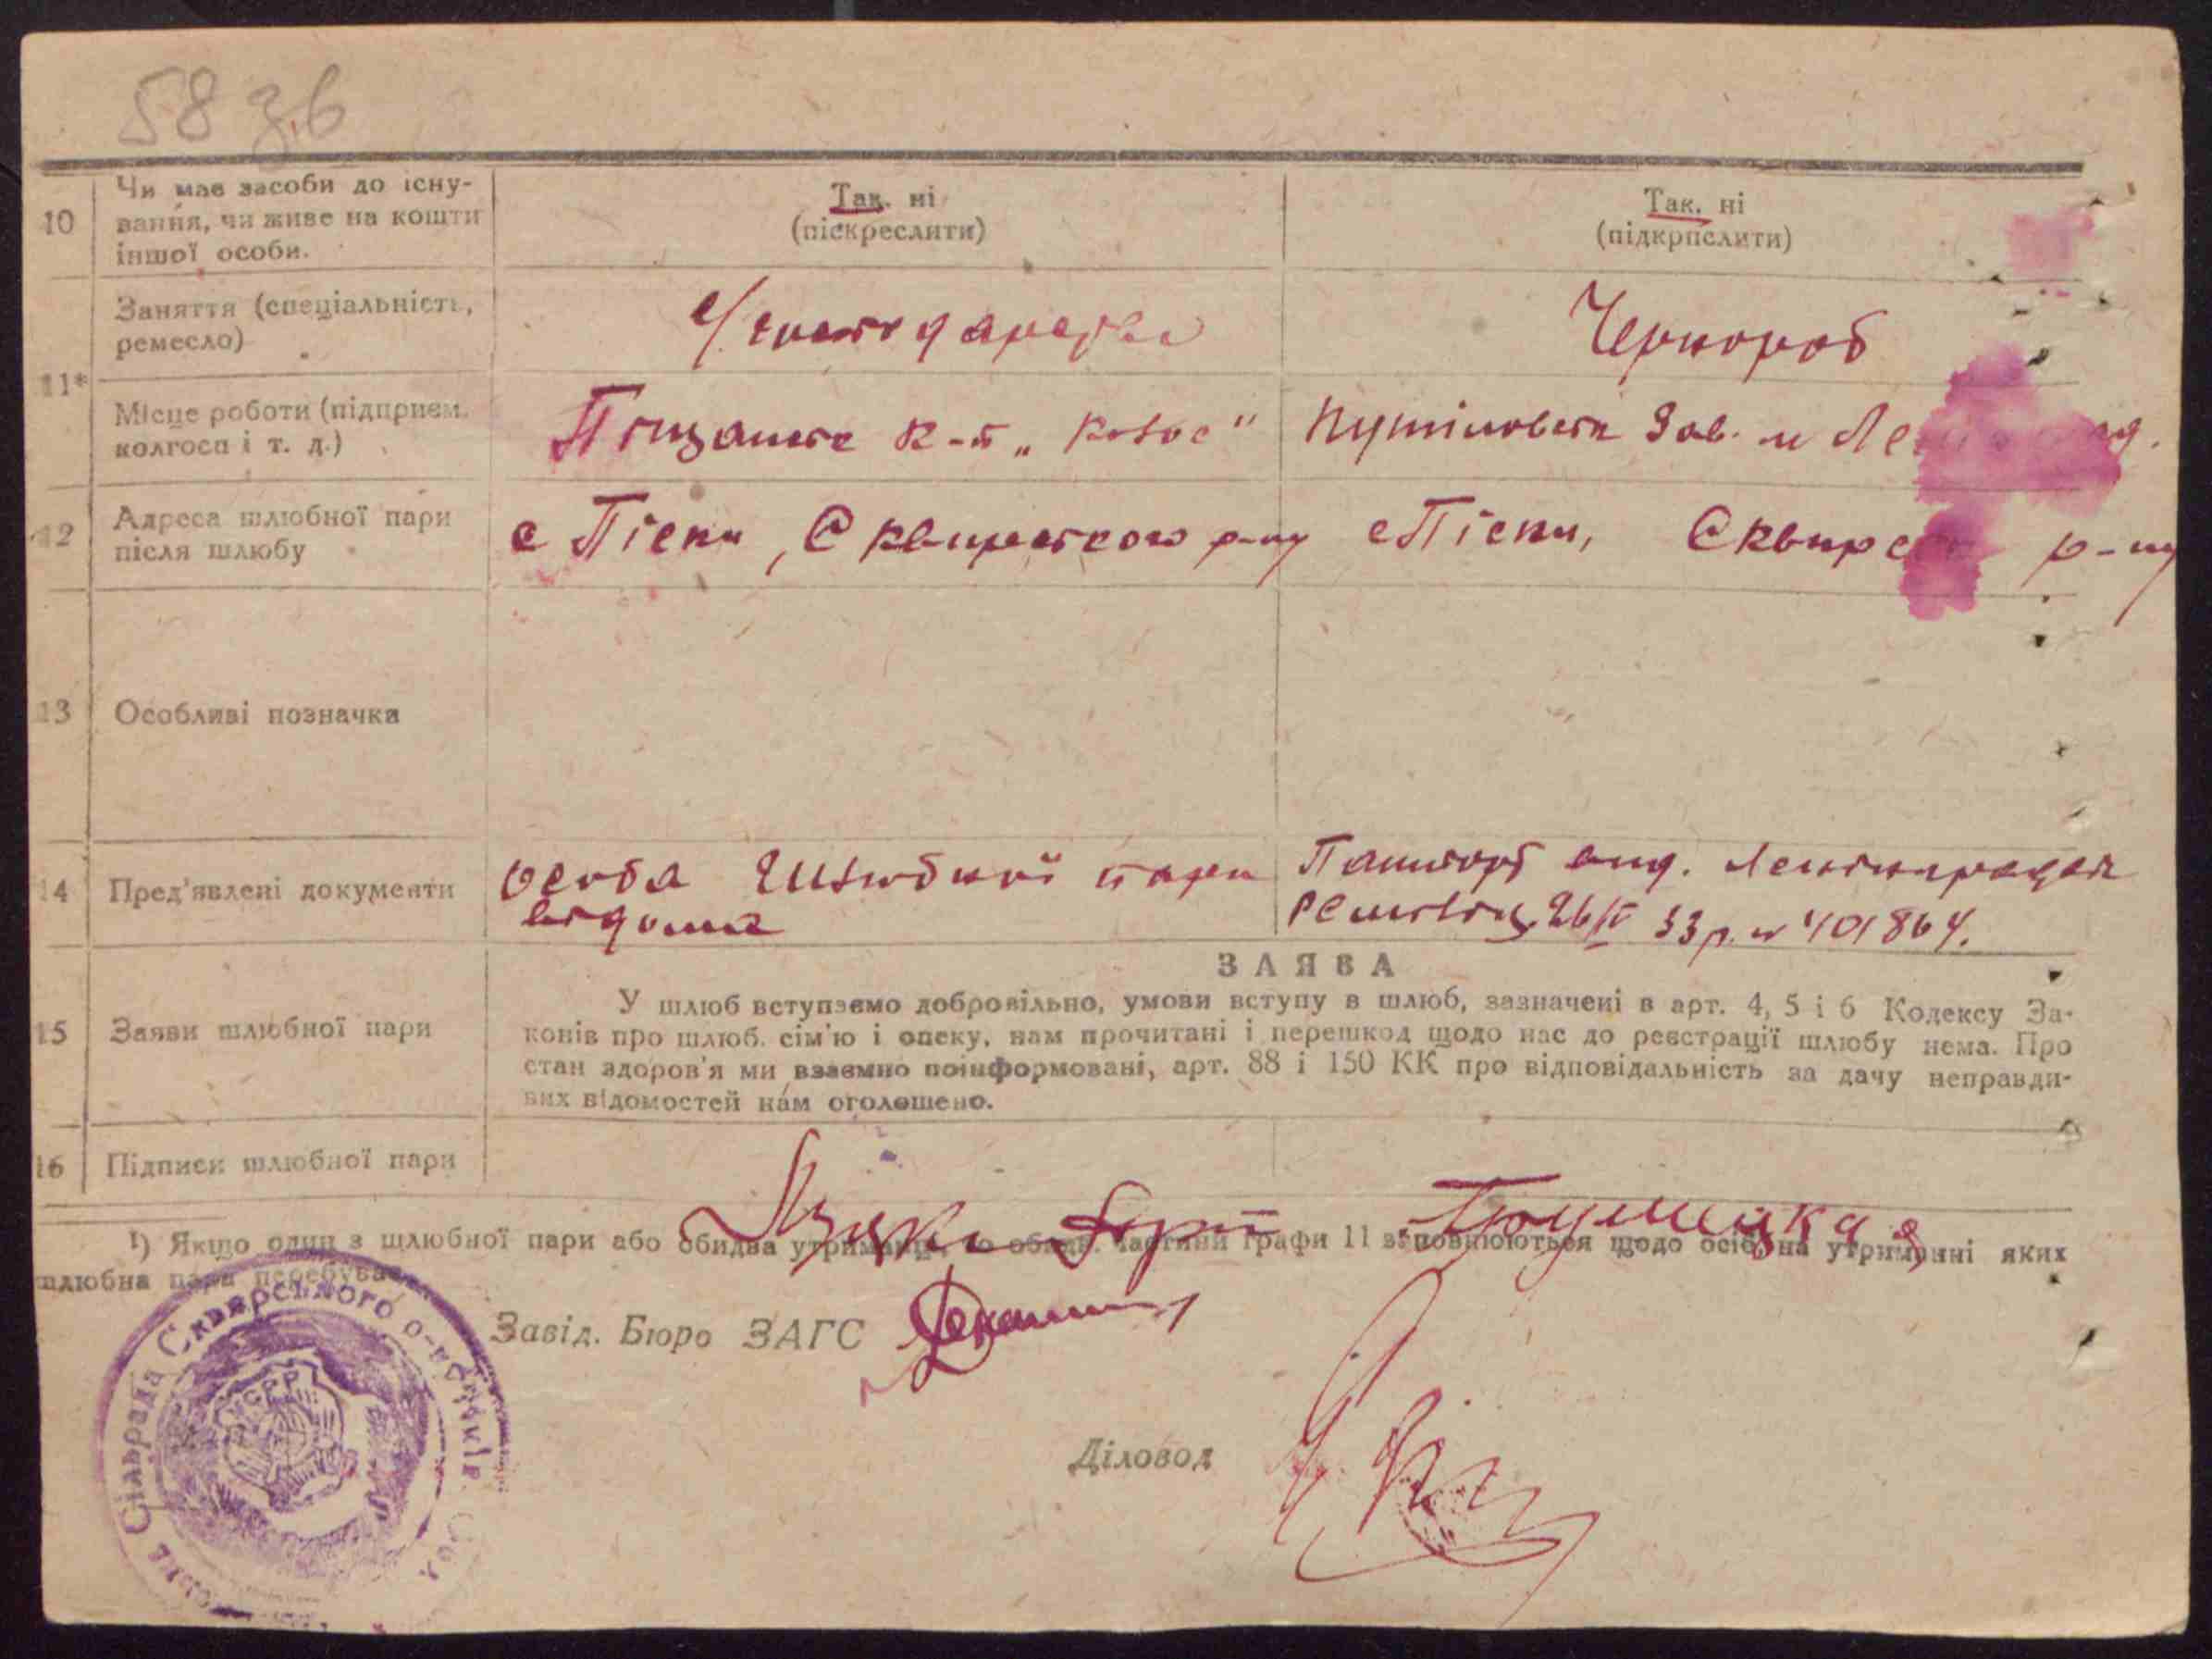 58 зв
10 Чи має засоби до існу-
вання, чи живе на кошти
іншої особи.
Так. ні
(піскреслити)
Так. ні
(підкрпслити)
11* Заняття (спеціальність,
ремесло)
Чернороб
Місце роботи (підприєм.
колгосп і т. д.)
Піщанське к-п „Колос"
Путіловськ Зав. м
12 Адреса шлюбної пари
після шлюбу
с Піски, Сквирського р-ну
с Піски, Сквирськ р-ну
13 Особливі позначка
14 Пред'явлені документи
особа шлюбной пари
відома
Паспорт вид. Ленінградск
33 р. № 401864.
15 Заяви шлюбної пари
ЗАЯВА
У шлюб вступаємо добровільно, умови вступу в шлюб, зазначені в арт. 4, 5 і 6 Кодексу За-
конів про шлюб. сім'ю і опеку, нам прочитані і перешкод щодо нас до реєстрації шлюбу нема. Про
стан здоров'я ми взаємно поінформовані, арт. 88 і 150 КК про відповідальність за дачу неправди-
вих відомостей нам оголошено.
16 Підписи шлюбної пари
1) Якщо один з шлюбної пари або обидва утриманці, то обидв. частини графи 11 заповнюються щодо осіб, на утриманні яких
шлюбна пара перебуває.
Завід. Бюро ЗАГС
Діловод
Сільрада Сквирського р-ну Київ. Обл.
УСРР